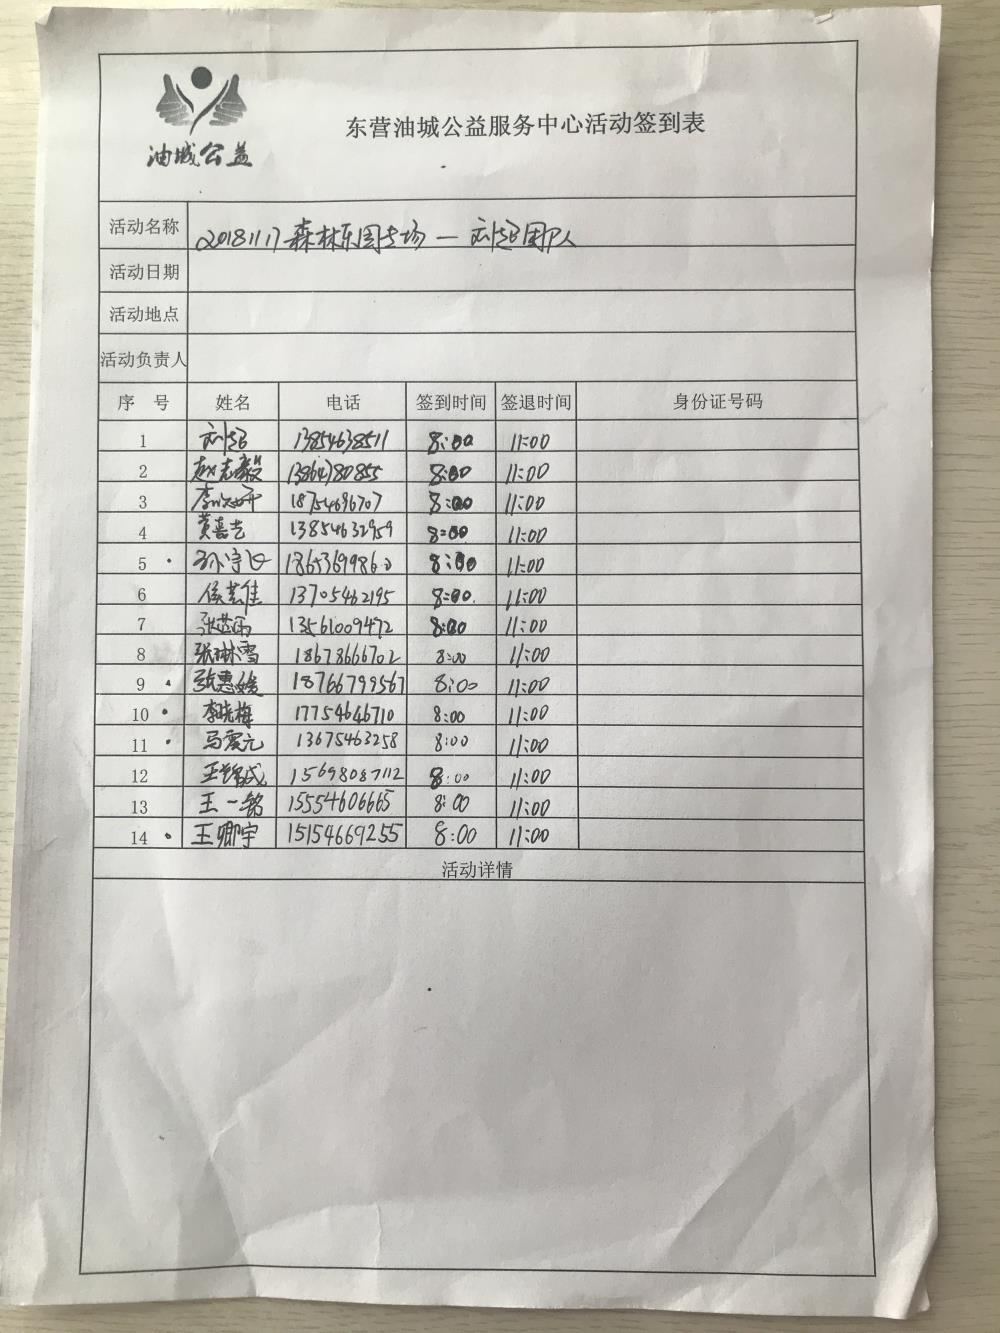 油城公益
东营油城公益服务中心活动签到表
活动名称 20181117森林乐园专场—刘超团队
活动日期
活动地点
活动负责人
序 号 姓名 电话 签到时间 签退时间 身份证号码
1 刘超 13854638511 8:00 11:00
2 赵志毅 13864780855 8:00 11:00
3 18754696707 8:00 11:00
4 黄嘉艺 13854632959 8:00 11:00
5 孙宇飞 18653699860 8:00 11:00
6 13705462195 8:00 11:00
7 张芷雨 13561009472 8:00 11:00
8 张琳雪 18678666702 8:00 11:00
9 张惠媛 18766799567 8:00 11:00
10 李晓梅 17754646710 8:00 11:00
11 马震元 13675463258 8:00 11:00
12 15698087112 8:00 11:00
13 王一铭 15554606665 8:00 11:00
14 王卿宇 15154669255 8:00 11:00
活动详情